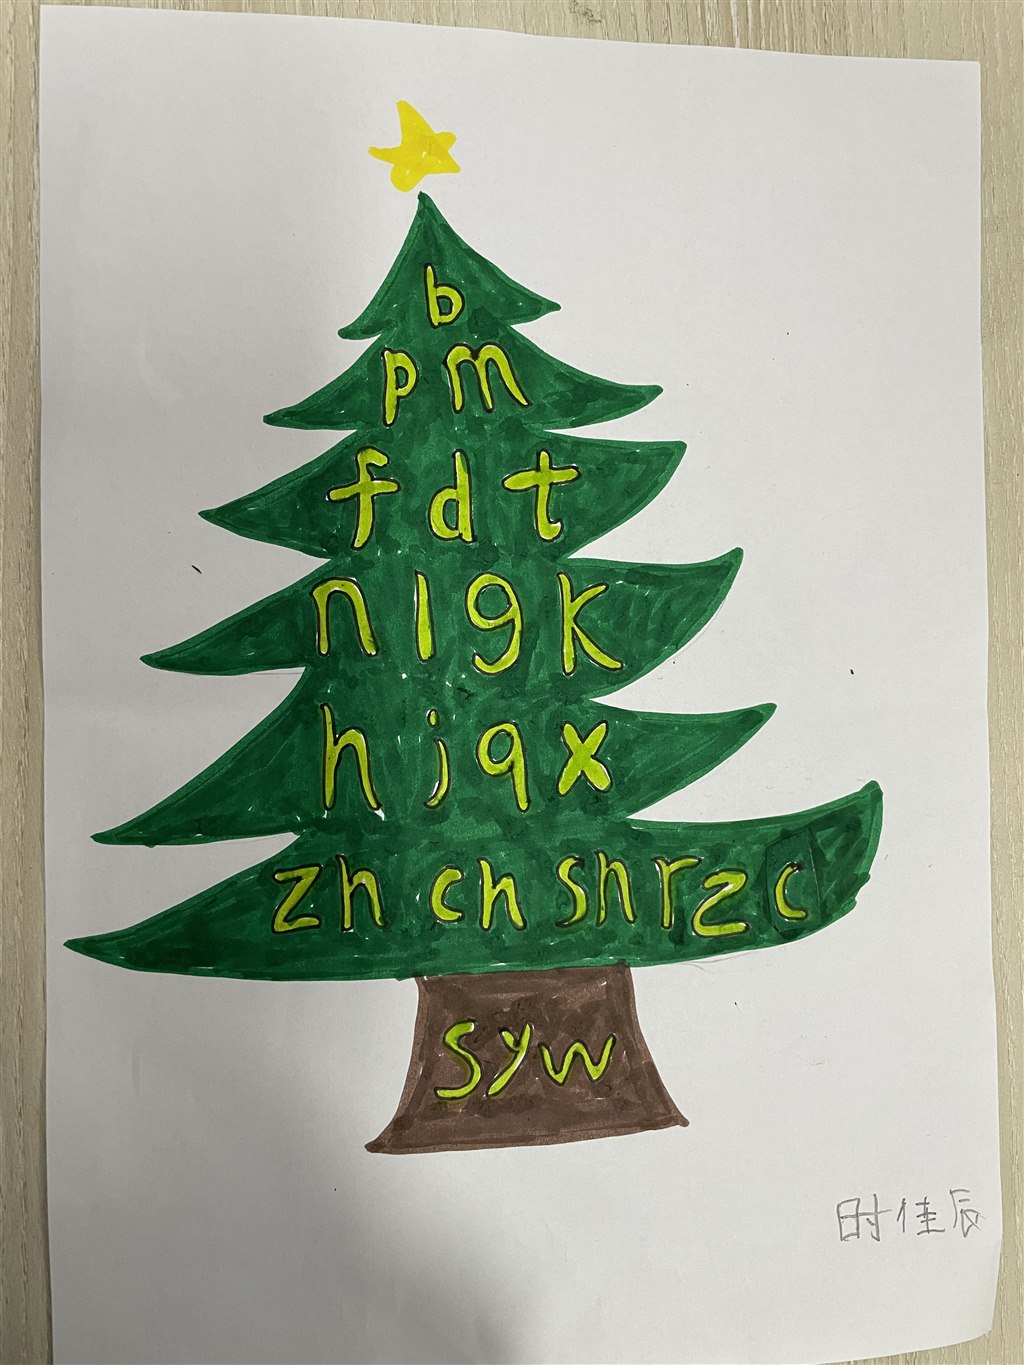 b
p m
f d t
n l g k
h j q x
zh ch sh r z c
s y w
时佳辰